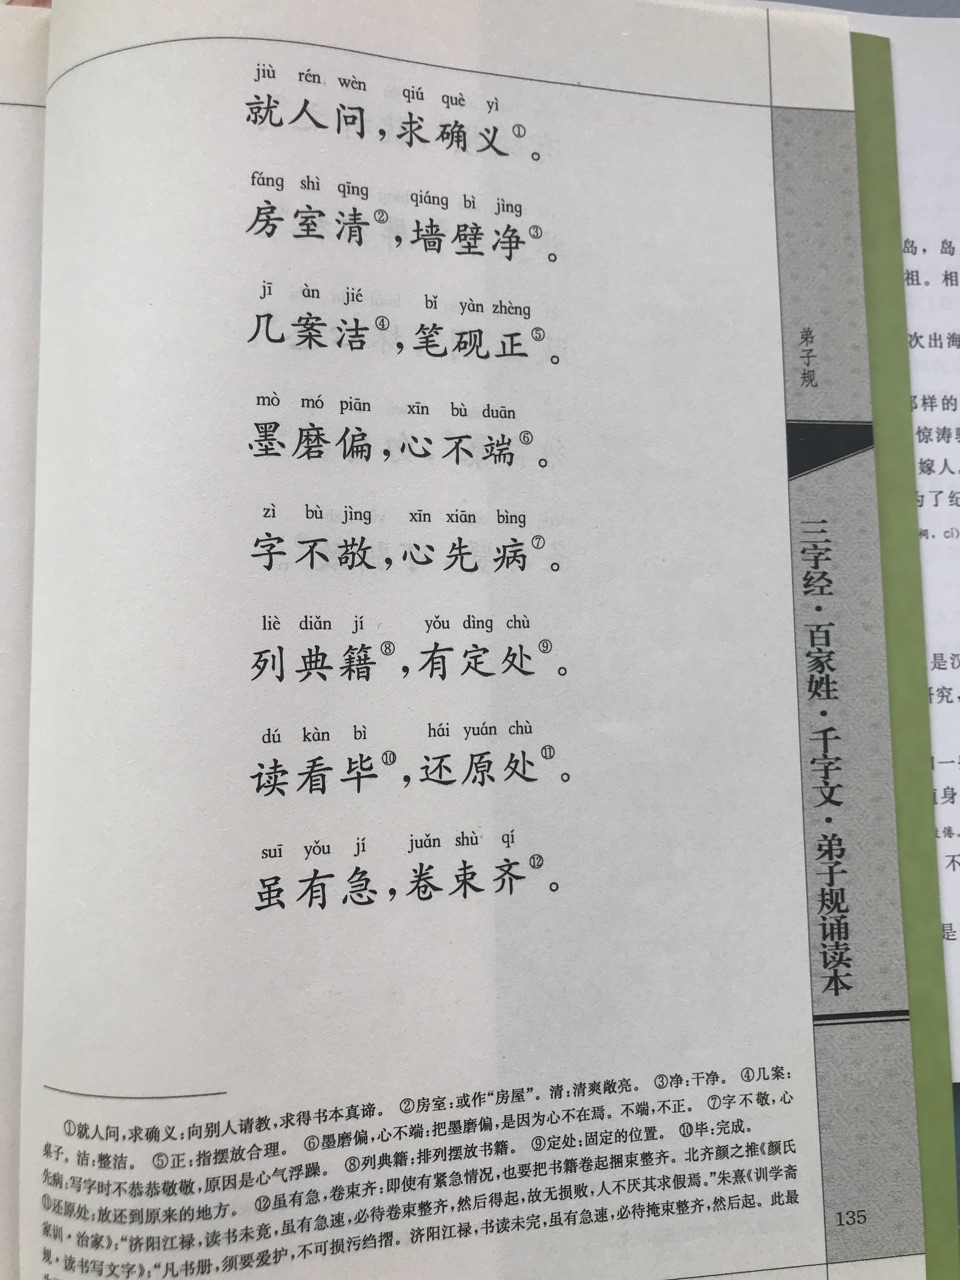 jiù rén wèn qiú què yì
就人问，求确义①。
fáng shì qīng qiáng bì jìng
房室清②，墙壁净③。
jī àn jié bǐ yàn zhèng
几案洁④，笔砚正⑤。
mò mó piān xīn bù duān
墨磨偏，心不端⑥。
zì bù jìng xīn xiān bìng
字不敬，心先病⑦。
liè diǎn jí yǒu dìng chù
列典籍⑧，有定处⑨。
dú kàn bì hái yuán chù
读看毕⑩，还原处⑪。
suī yǒu jí juǎn shù qí
虽有急，卷束齐⑫。
①就人问，求确义：向别人请教，求得书本真谛。 ②房室：或作“房屋”。清：清爽敞亮。 ③净：干净。 ④几案：
桌子。洁：整洁。 ⑤正：指摆放合理。 ⑥墨磨偏，心不端：把墨磨偏，是因为心不在焉。不端，不正。 ⑦字不敬，心
先病：写字时不恭恭敬敬，原因是心气浮躁。 ⑧列典籍：排列摆放书籍。 ⑨定处：固定的位置。 ⑩毕：完成。
⑪还原处：放还到原来的地方。 ⑫虽有急，卷束齐：即使有紧急情况，也要把书籍卷起捆束整齐。北齐颜之推《颜氏
家训·治家》：“济阳江禄，读书未竟，虽有急速，必待卷束整齐，然后得起，故无损败，人不厌其求假焉。”朱熹《训学斋
规·读书写文字》：“凡书册，须要爱护，不可损污绉摺。济阳江禄，书读未完，虽有急速，必待掩束整齐，然后起。此最
弟子规
三字经·百家姓·千字文·弟子规诵读本
135
岛，岛
祖。相
次出海
那样的
惊涛
嫁人
为了纪
祠，cí
是汉
研究，
一
身
倦
不
是